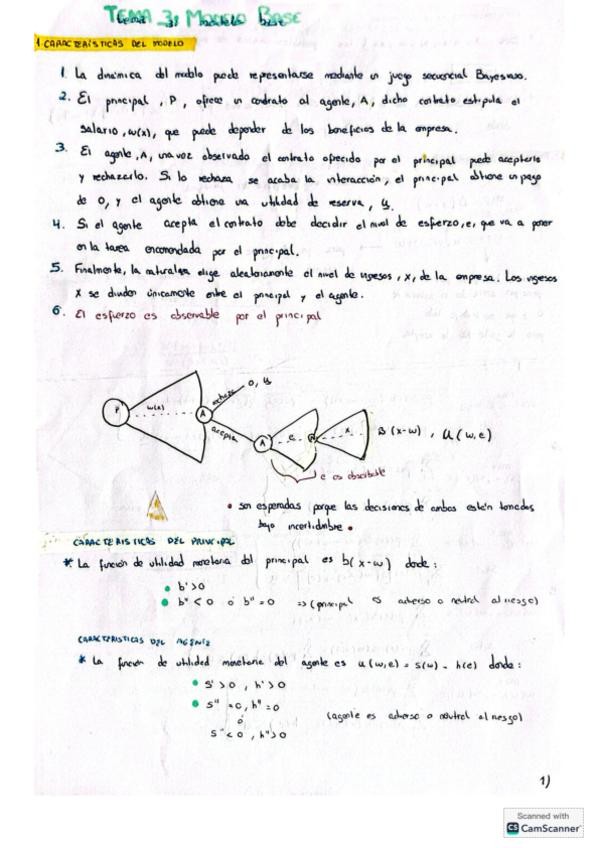 TEMA 3: MODELO BASE
1. CARACTERÍSTICAS DEL MODELO
1. La dinámica del modelo puede representarse mediante un juego secuencial Bayesiano.
2. El principal, P, ofrece un contrato al agente, A, dicho contrato estipula el
salario, w(x), que puede depender de los beneficios de la empresa.
3. El agente, A, una vez observado el contrato ofrecido por el principal puede aceptarlo
y rechazarlo. Si lo rechaza, se acaba la interacción, el principal obtiene un pago
de 0, y el agente obtiene una utilidad de reserva, u.
4. Si el agente acepta el contrato debe decidir el nivel de esfuerzo, e, que va a poner
en la tarea encomendada por el principal.
5. Finalmente, la naturaleza elige aleatoriamente el nivel de ingresos, x, de la empresa. Los ingresos
x se dividen únicamente entre el principal y el agente.
6. El esfuerzo es observable por el principal
rechaza 0, u
P w(x) A
acepta A e N x B(x-w), U(w,e)
e es observable
• son esperadas porque las decisiones de ambos están tomadas
bajo incertidumbre •
CARACTERISTICAS DEL PRINCIPAL
* La función de utilidad monetaria del principal es b(x-w) donde:
• b'>0
• b''<0 ó b''=0 => (principal es adverso o neutral al riesgo)
CARACTERISTICAS DEL AGENTE
* La función de utilidad monetaria del agente es u(w,e) = s(w) - h(e) donde:
• s'>0, h'>0
• s''=0, h''=0
ó (agente es adverso o neutral al riesgo)
s''<0, h''>0
1)
Scanned with
CS CamScanner